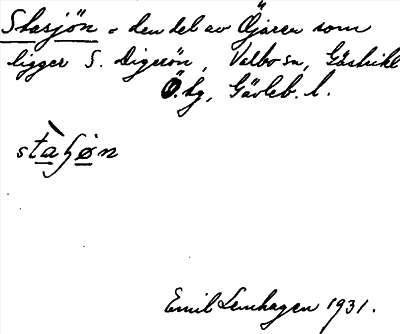 Stasjön = den del av Öjaren som
ligger S. Digerön, Valbo sn, Gästrikl.
Ö. tg, Gävleb. l.
Emil Lenhagen 1931.